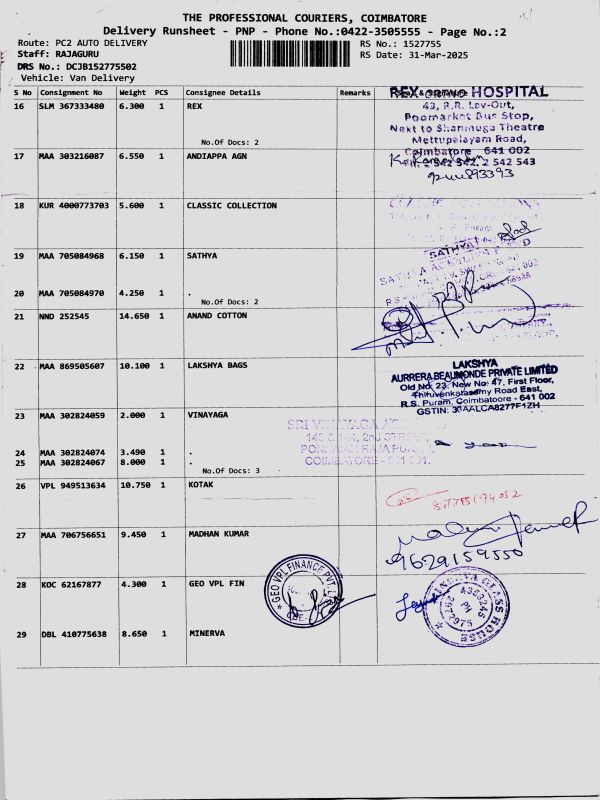 THE PROFESSIONAL COURIERS, COIMBATORE
Delivery Runsheet - PNP - Phone No.:0422-3505555 - Page No.:2
Route: PC2 AUTO DELIVERY
RS No.: 1527755
Staff: RAJAGURU
RS Date: 31-Mar-2025
DRS No.: DCJB152775502
Vehicle: Van Delivery
S No Consignment No Weight PCS Consignee Details Remarks
16 SLM 367333480 6.300 1 REX
No.Of Docs: 2
REX ORTHO HOSPITAL
43, R.R. Lay-Out,
Poomarket Bus Stop,
Next to Shanmuga Theatre
Mettupalayam Road,
Coimbatore 641 002
2 542 543
17 MAA 303216087 6.550 1 ANDIAPPA AGN
18 KUR 4000773703 5.600 1 CLASSIC COLLECTION
19 MAA 705084968 6.150 1 SATHYA
SATHYA
20 MAA 705084970 4.250 1 .
No.Of Docs: 2
21 NND 252545 14.650 1 ANAND COTTON
22 MAA 869505607 10.100 1 LAKSHYA BAGS
LAKSHYA
AURRERA BEAUMONDE PRIVATE LIMITED
Old No, 23, New No: 47, First Floor,
Thiruvenkatasamy Road East,
R.S. Puram, Coimbatoore - 641 002
GSTIN: 33AALCA8277F1ZH
23 MAA 302824059 2.000 1 VINAYAGA
SRI VINAYAGA
2nd STREET
24 MAA 302824074 3.490 1 .
25 MAA 302824067 8.000 1 .
COIMBATORE - 641 001.
No.Of Docs: 3
26 VPL 949513634 10.750 1 KOTAK
27 MAA 706756651 9.450 1 MADHAN KUMAR
9629159550
28 KOC 62167877 4.300 1 GEO VPL FIN
GEO VPL FINANCE PVT LTD
GLASS HOUSE
PH
29 DBL 410775638 8.650 1 MINERVA